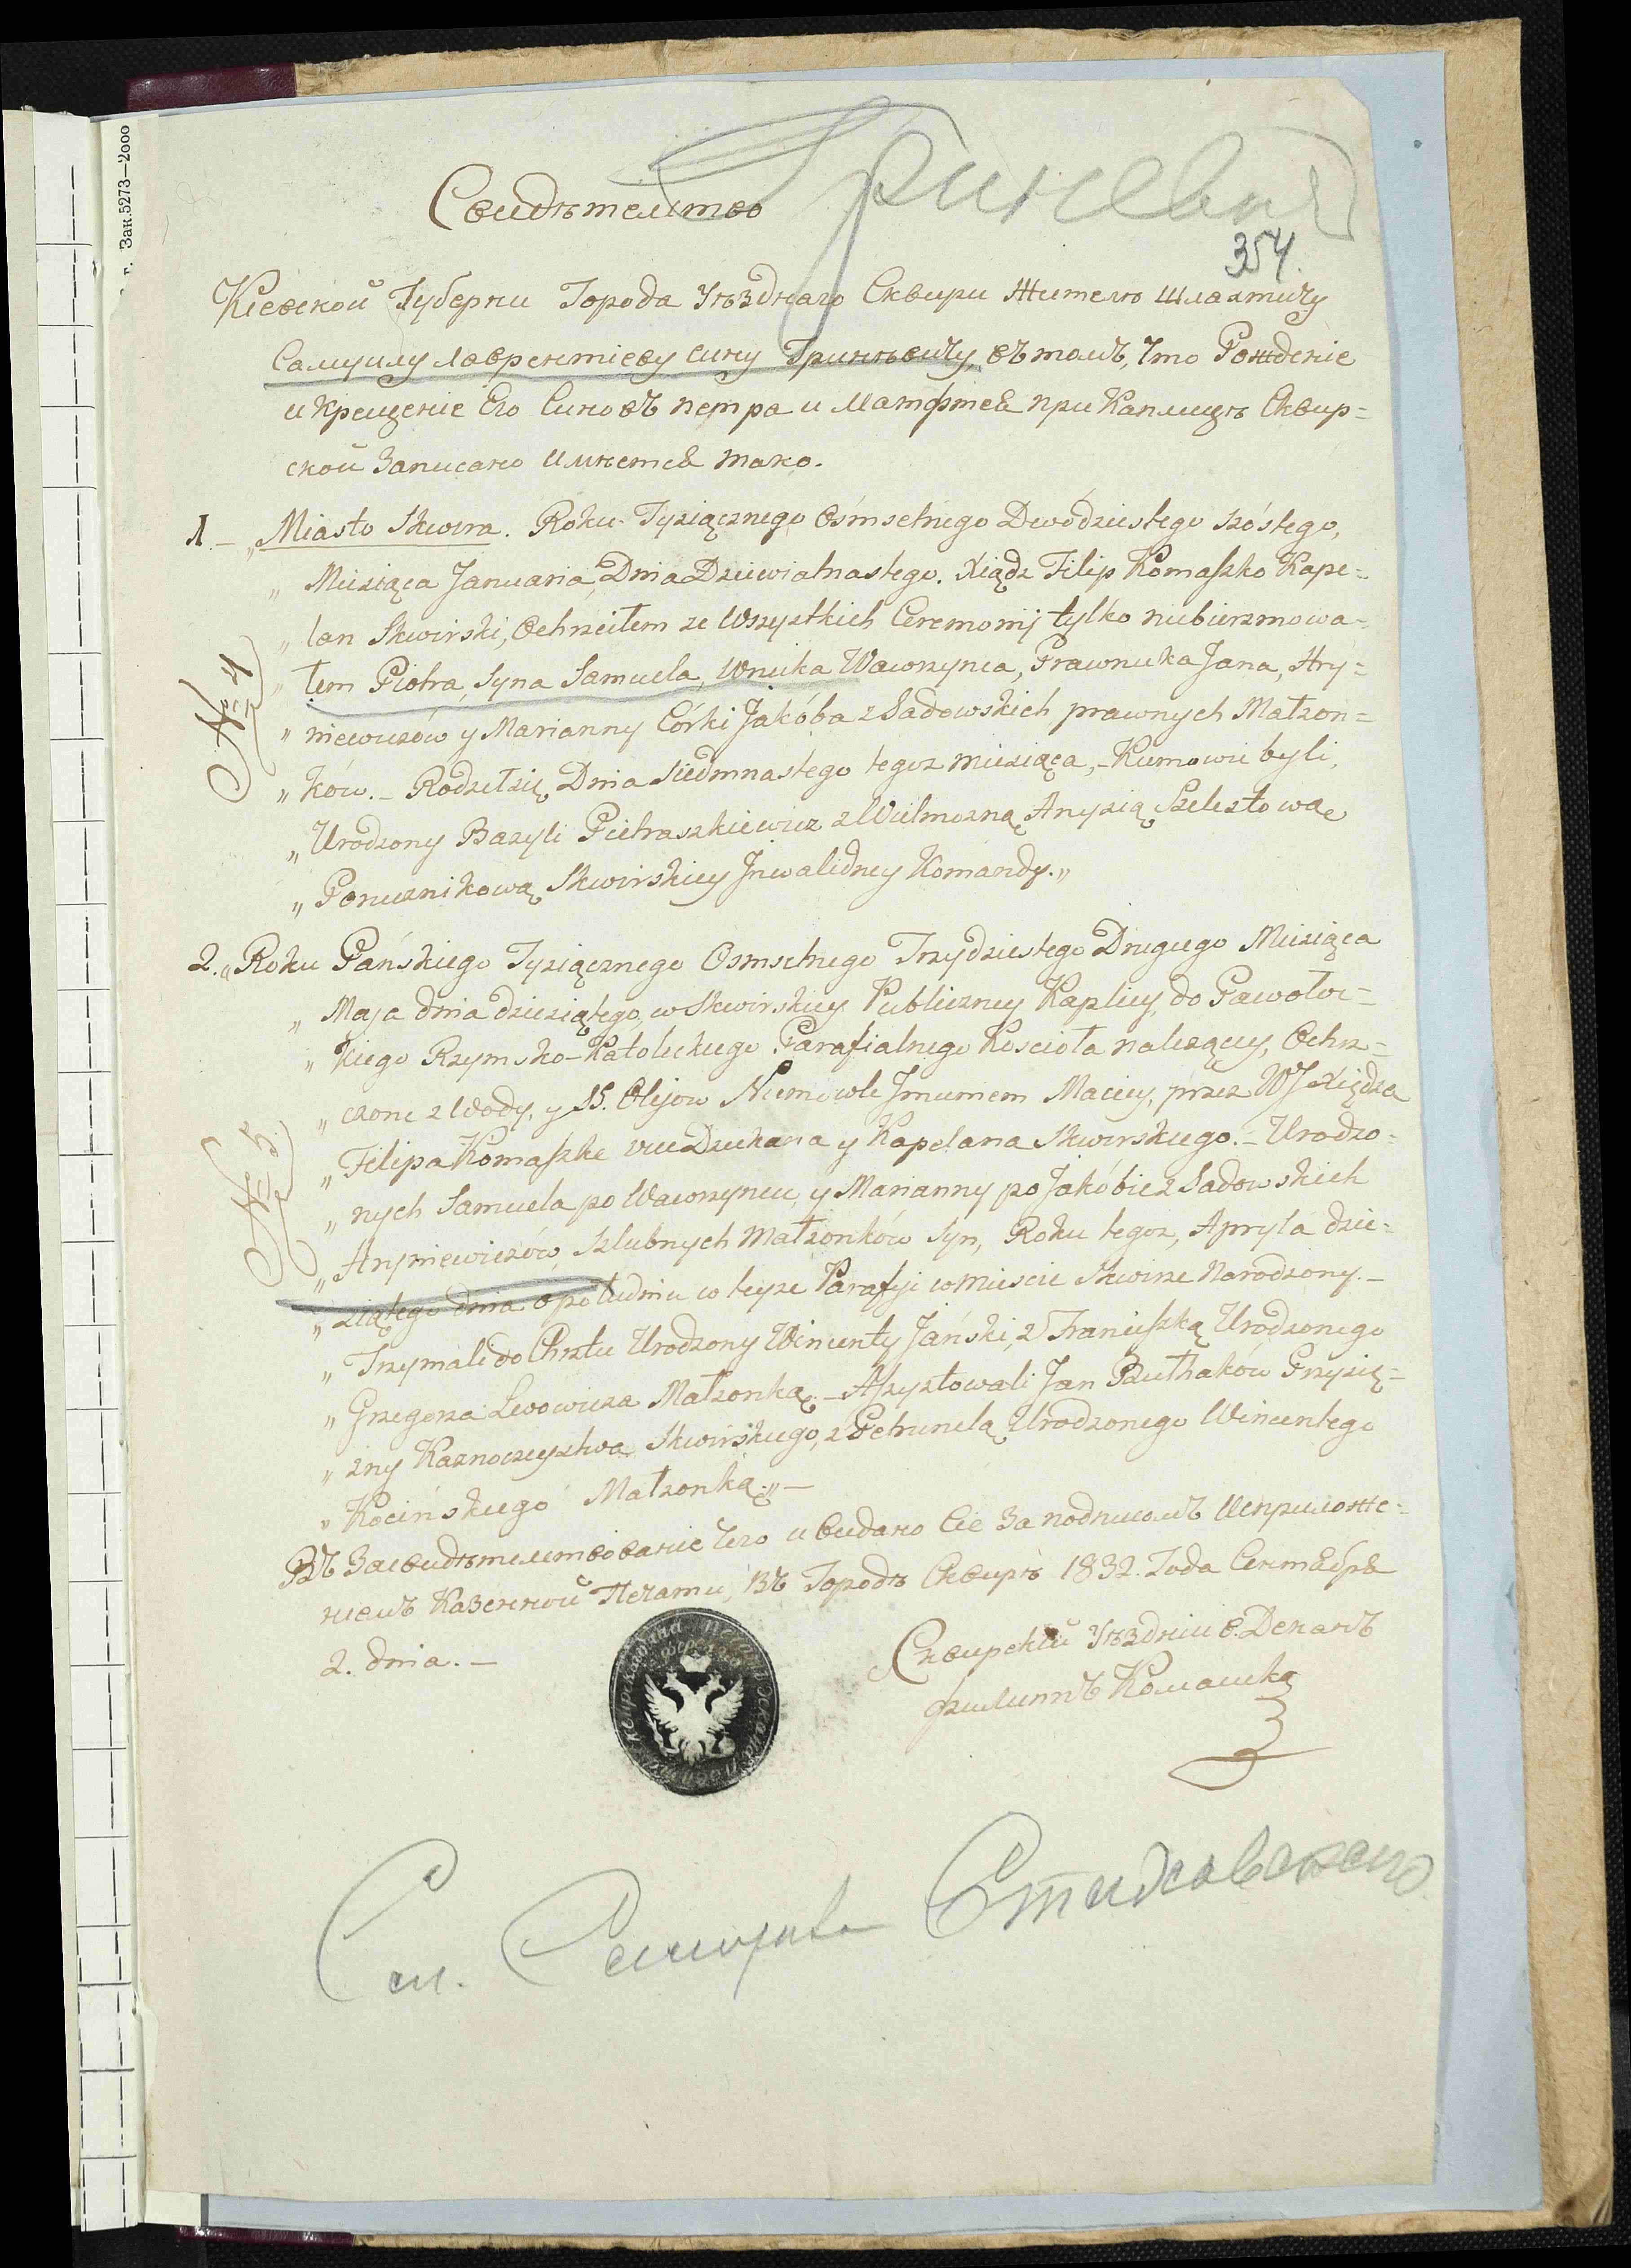 г. Зак.5273—2000
Гриневич
Свидѣтелство
354.
Кіевской Губерни Города Уѣзднаго Сквири Жителю Шляхтичу
Самуилу Лаврентіеву сину Гринѣвичу, въ томъ, что Рожденіе
и крещеніе Его Синовъ петра и Матфтея при Каплицѣ Сквир=
ской Записано Имѣется тако.
1.- „Miasto Skwira. Roku Tysiącznego Osmsetnego Dwódziestego szóstego,
„ Miesiąca Januaria, Dnia Dziewiatnastego. Xiądz Filip Komaszko Kape=
„ lan Skwirski, Ochrzciłem ze Wszystkich Ceremonij tylko niebierzmowa=
„ łem Piotra, Syna Samuela, Wnuka Wawrzynca, Prawnuka Jana, Hry=
„ niewiczów y Marianny Córki Jakóba z Sadowskich prawnych Małżon=
„ ków.- Rodził się Dnia Siedmnastego tegoz miesiąca,- Kumowie byli,
„ Urodzony Bazyli Pietraszkiewicz z Wielmozną Anyzią Szelestową
„ Poruznikową Skwirskiey Jnwalidney Komandy.„
№ 4
2. „Roku Pańskiego Tysiącznego Osmsetnego Trzydziestego Drugiego Miesiąca
„ Maja dnia dziesiątego, w Skwirskiey Publiczney Kaplicy, do Pawołoc=
„ kiego Rzymsko-Katolickiego Parafialnego Kościoła nalezącey, Ochrz=
„ czone z Wody, y SS. Olijow Niemowle Jmieniem Maciey, przez WJ Xiędza
„ Filipa Komaszkę vice Dziekana y Kapelana Skwirskiego.- Urodzo=
„ nych Samuela po Wawrzyncu, y Marianny po Jakóbie z Sadowskich
„ Hryniewiczów, szlubnych Małżonków Syn, Roku tegoz, Apryla dzie=
„ siątego dnia o południu w teyze Parafji w mieście Skwirze Narodzony.-
„ Trzymali do Chrztu Urodzony Wincenty Jański, z Franciszką Urodzonego
„ Grzegorza Lwowicza Małżonką.- Assystowali Jan Buthaków Przysię=
„ zny Kaznoczeystwa Skwirskiego, z Petrunelą Urodzonego Wincentego
„ Kocińskiego Małżonką.„-
№ 5.
Въ Засвидѣтелствованіе чего и видано Сіе За подписомъ И приложе=
ніемъ Казенной Печати, Въ Городѣ Сквирѣ 1832. Года Сентября
2. дnia.-
Сквирскій Уѣздній В. Деканъ
филиппъ Комашко
См.